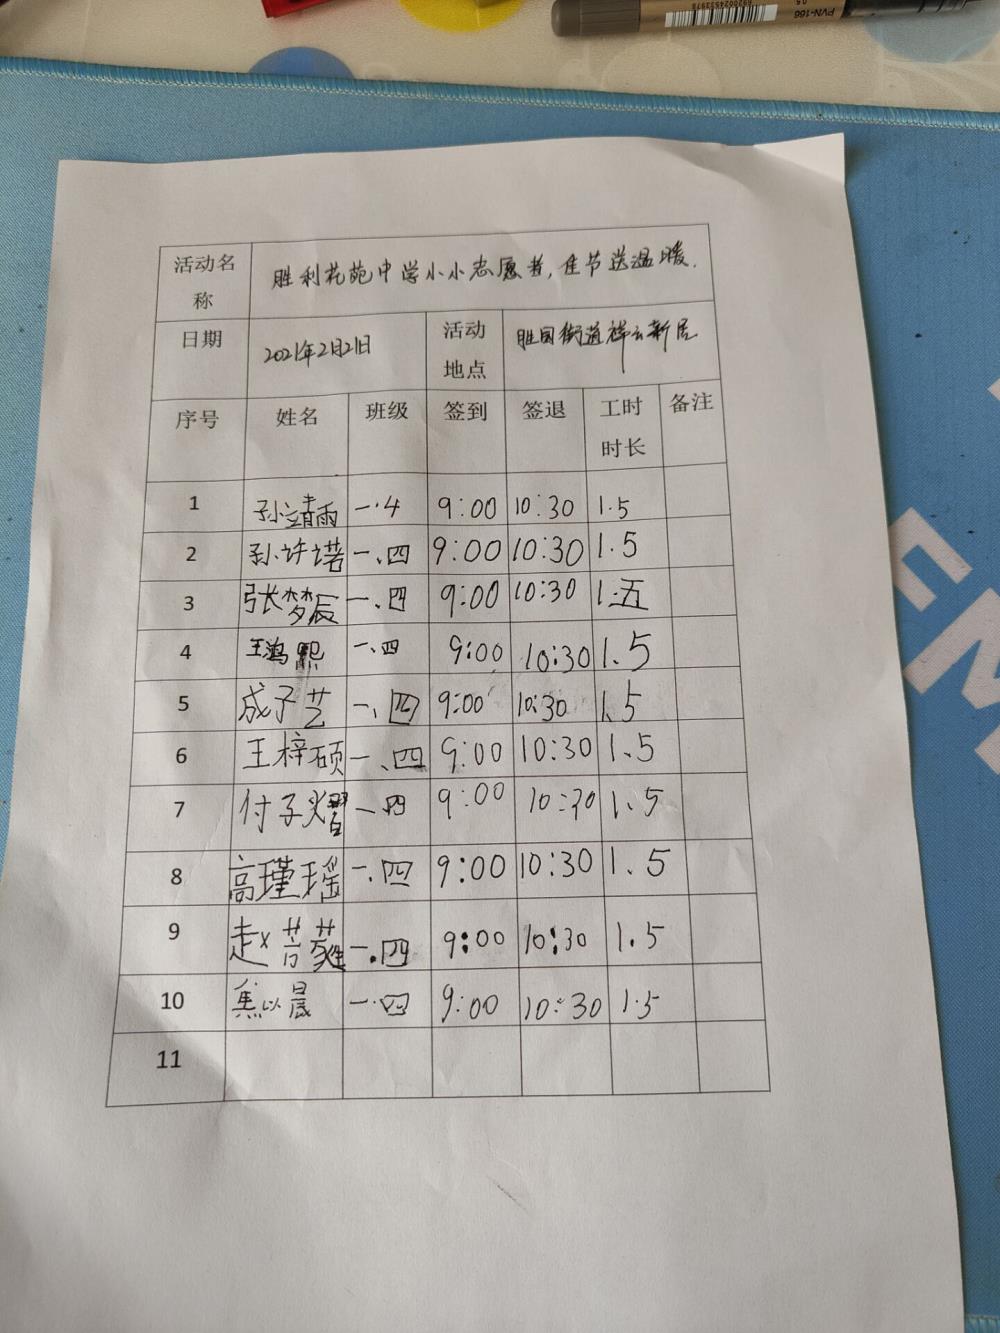 PVN-166
0.5
6920624533978
活动名称 胜利花苑中学小小志愿者,佳节送温暖.
日期 2021年2月21日 活动地点 胜园街道祥云新居
序号 姓名 班级 签到 签退 工时时长 备注
1 孙靖雨 一.4 9:00 10:30 1.5
2 孙许诺 一、四 9:00 10:30 1.5
3 张梦辰 一、四 9:00 10:30 1.五
4 王鸿熙 一、四 9:00 10:30 1.5
5 成子艺 一、四 9:00 10:30 1.5
6 王梓硕 一、四 9:00 10:30 1.5
7 付子熠 一.四 9:00 10:30 1.5
8 高瑾瑶 一.四 9:00 10:30 1.5
9 赵 一.四 9:00 10:30 1.5
10 焦以晨 一.四 9:00 10:30 1.5
11